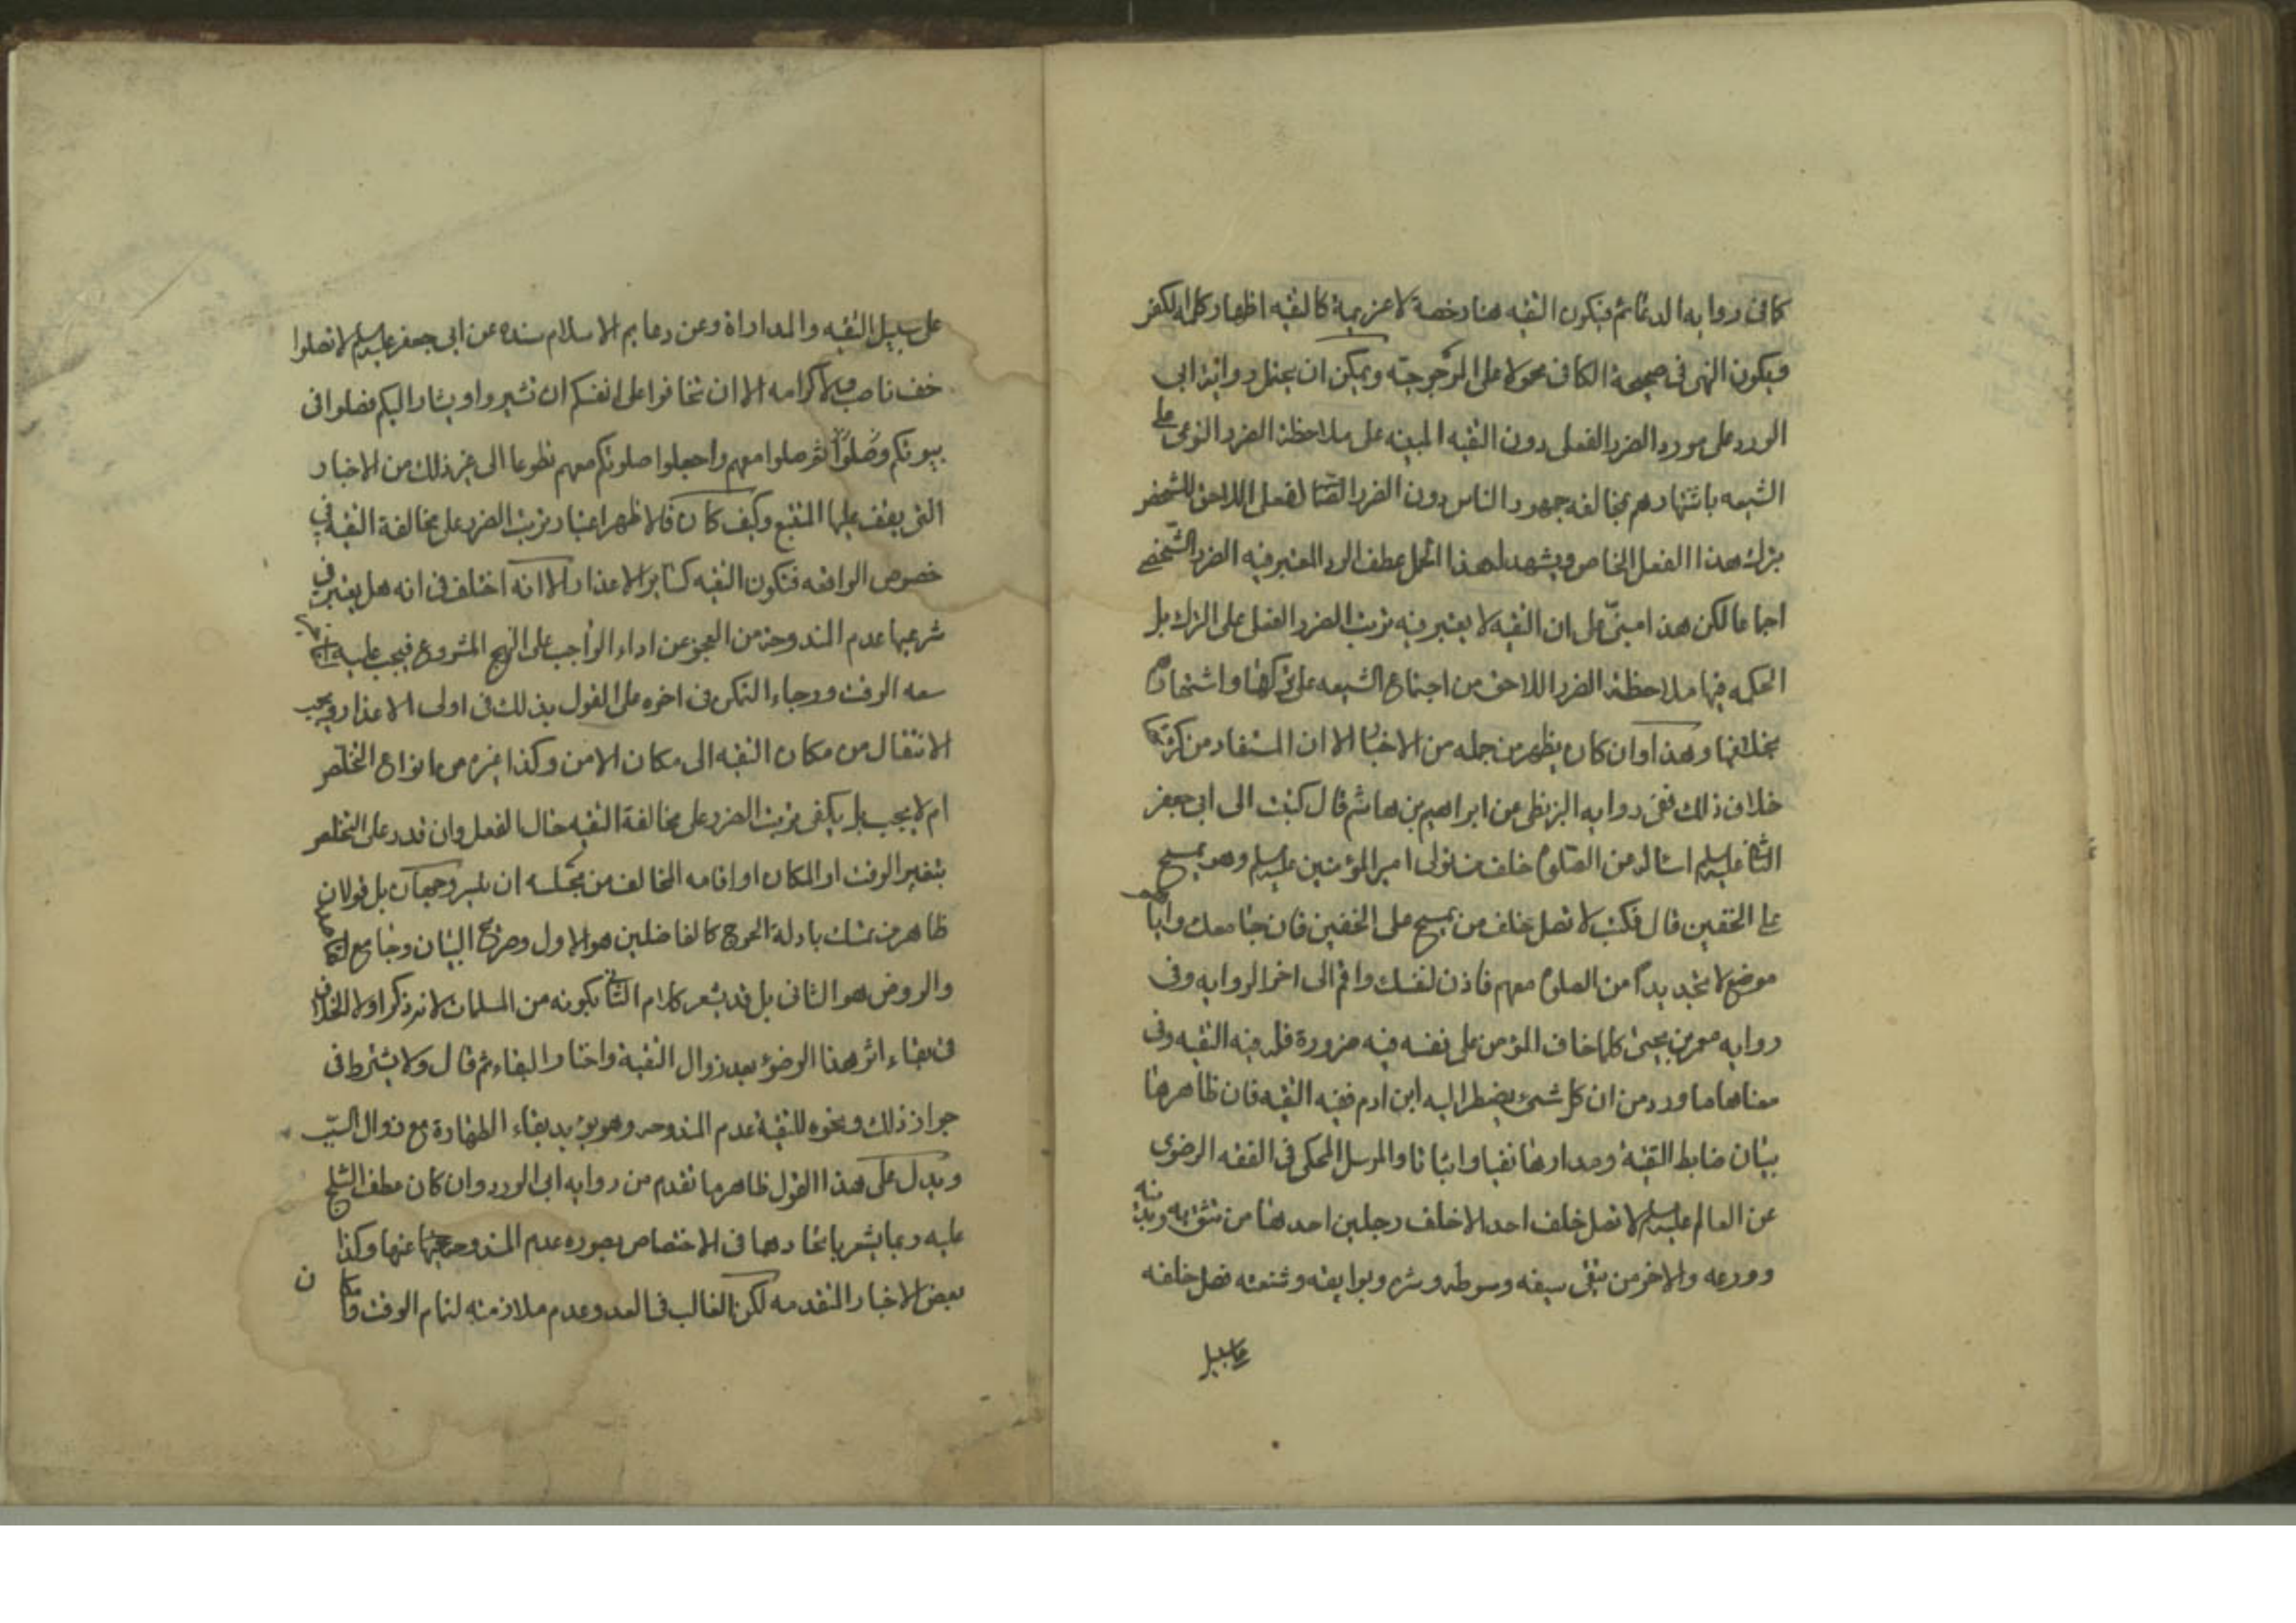 كما في رواية الدعائم فيكون التقيه هنا رخصة لا عزيمة كالتقيه اظهار كلمة الكفر
فيكون النهى في صحيحة الكافي محمولا على المرجوحيته ويمكن ان يحمل رواية ابى
الورد على مورد الضرر الفعلى دون التقيه المبنيه على ملاحظة الضرر النوعى على
الشيعه باشتهارهم بمخالفه جمهور الناس دون الضرر لفعل اللاحق للشخص
بترك هذا الفعل الخاص ويشهد لهذا الحمل عطف الورد المعتبر فيه الضرر الشخصى
اجماعا لكن هذا مبنى على ان التقيه لا يعتبر فيه ترتب الضرر الفعلى على الترك بل
الحكمه فيها ملاحظة الضرر اللاحق من اجتماع الشيعه على تركها واشتهارهم
بمخالفتها وهذا وان كان يظهر من جمله من الاخبار الا ان المستفاد من كثير منها
خلاف ذلك ففى روايه البزنطى عن ابراهيم بن هاشم قال كتبت الى ابى جعفر
الثانى عليه السلم اساله من الصلوة خلف من يتولى امير المؤمنين عليه السلم وهو يمسح
على الخفين قال فكتب لا تصل خلف من يمسح على الخفين فان جامعك واياهم
موضع لا تجد بدا من الصلوة معهم فاذن لنفسك واقم الى اخر الروايه وفى
روايه معمر بن يحيى كلما خاف المؤمن على نفسه فيه ضرورة فله فيه التقيه وفى
معناها ما ورد من ان كل شىء يضطر اليه ابن ادم ففيه التقيه فان ظاهرها
بيان ضابط التقية ومدارها نفيا واثباتا والمرسل المحكى فى الفقه الرضوى
عن العالم عليه السلم لا تصل خلف احد الا خلف رجلين احدهما من تثق به وبدينه
وورعه والاخر من تتقى سيفه وسوطه وشره وبوايقه وشنعته فصل خلفه
على سبيل
على سبيل التقيه والمداراة وعن دعايم الاسلام بسنده عن ابى جعفر عليه السلم لا تصلوا
خلف ناصب ولا كرامه الا ان تخافوا على انفسكم ان تشهروا ويشار اليكم فصلوا فى
بيوتكم وصلوا ثم صلوا معهم واجعلوا صلوتكم معهم تطوعا الى غير ذلك من الاخبار
التى يقف عليها المتتبع وكيف كان فالاظهر اعتبار ترتب الضرر على مخالفة التقيه فى
خصوص الواقعه فتكون التقيه كسائر الاعذار الا انه اختلف فى انه هل يعتبر فى
شرعيتها عدم المندوحة من العجز عن اداء الواجب على النهج المشروع فيجب عليه
سعه الوقت ورجاء التمكن فى اخره على القول بذلك فى اولى الاعذار ويجب
الانتقال من مكان التقيه الى مكان الامن وكذا غيره من انواع التخلص
ام لا يجب بل يكفى ترتب الضرر على مخالفة التقيه حال الفعل وان قدر على التخلص
بتغيير الوقت او المكان او اقامه المخالف من مجلسه ان تيسر وجهان بل قولان
ظاهر من تمسك بادلة الحرج كالفاضلين هو الاول وصريح البيان وجامع المقاصد
والروض هو الثانى بل قد يشعر كلام الثانى بكونه من المسلمات لانه ذكر اولا الخلاف
فى بقاء اثر هذا الوضوء بعد زوال التقية واختار البقاء ثم قال ولا يشترط فى
جواز ذلك ونحوه للتقية عدم المندوحه وهو يؤيد بقاء الطهارة مع زوال السبب
ويدل على هذا القول ظاهر ما تقدم من روايه ابى الورد وان كان عطف الثلج
عليه ربما يشعر باتحادهما فى الاختصاص بصوره عدم المندوحه عنها وكذا
بعض الاخبار المتقدمه لكن الغالب فى العدو عدم ملازمته لتمام الوقت